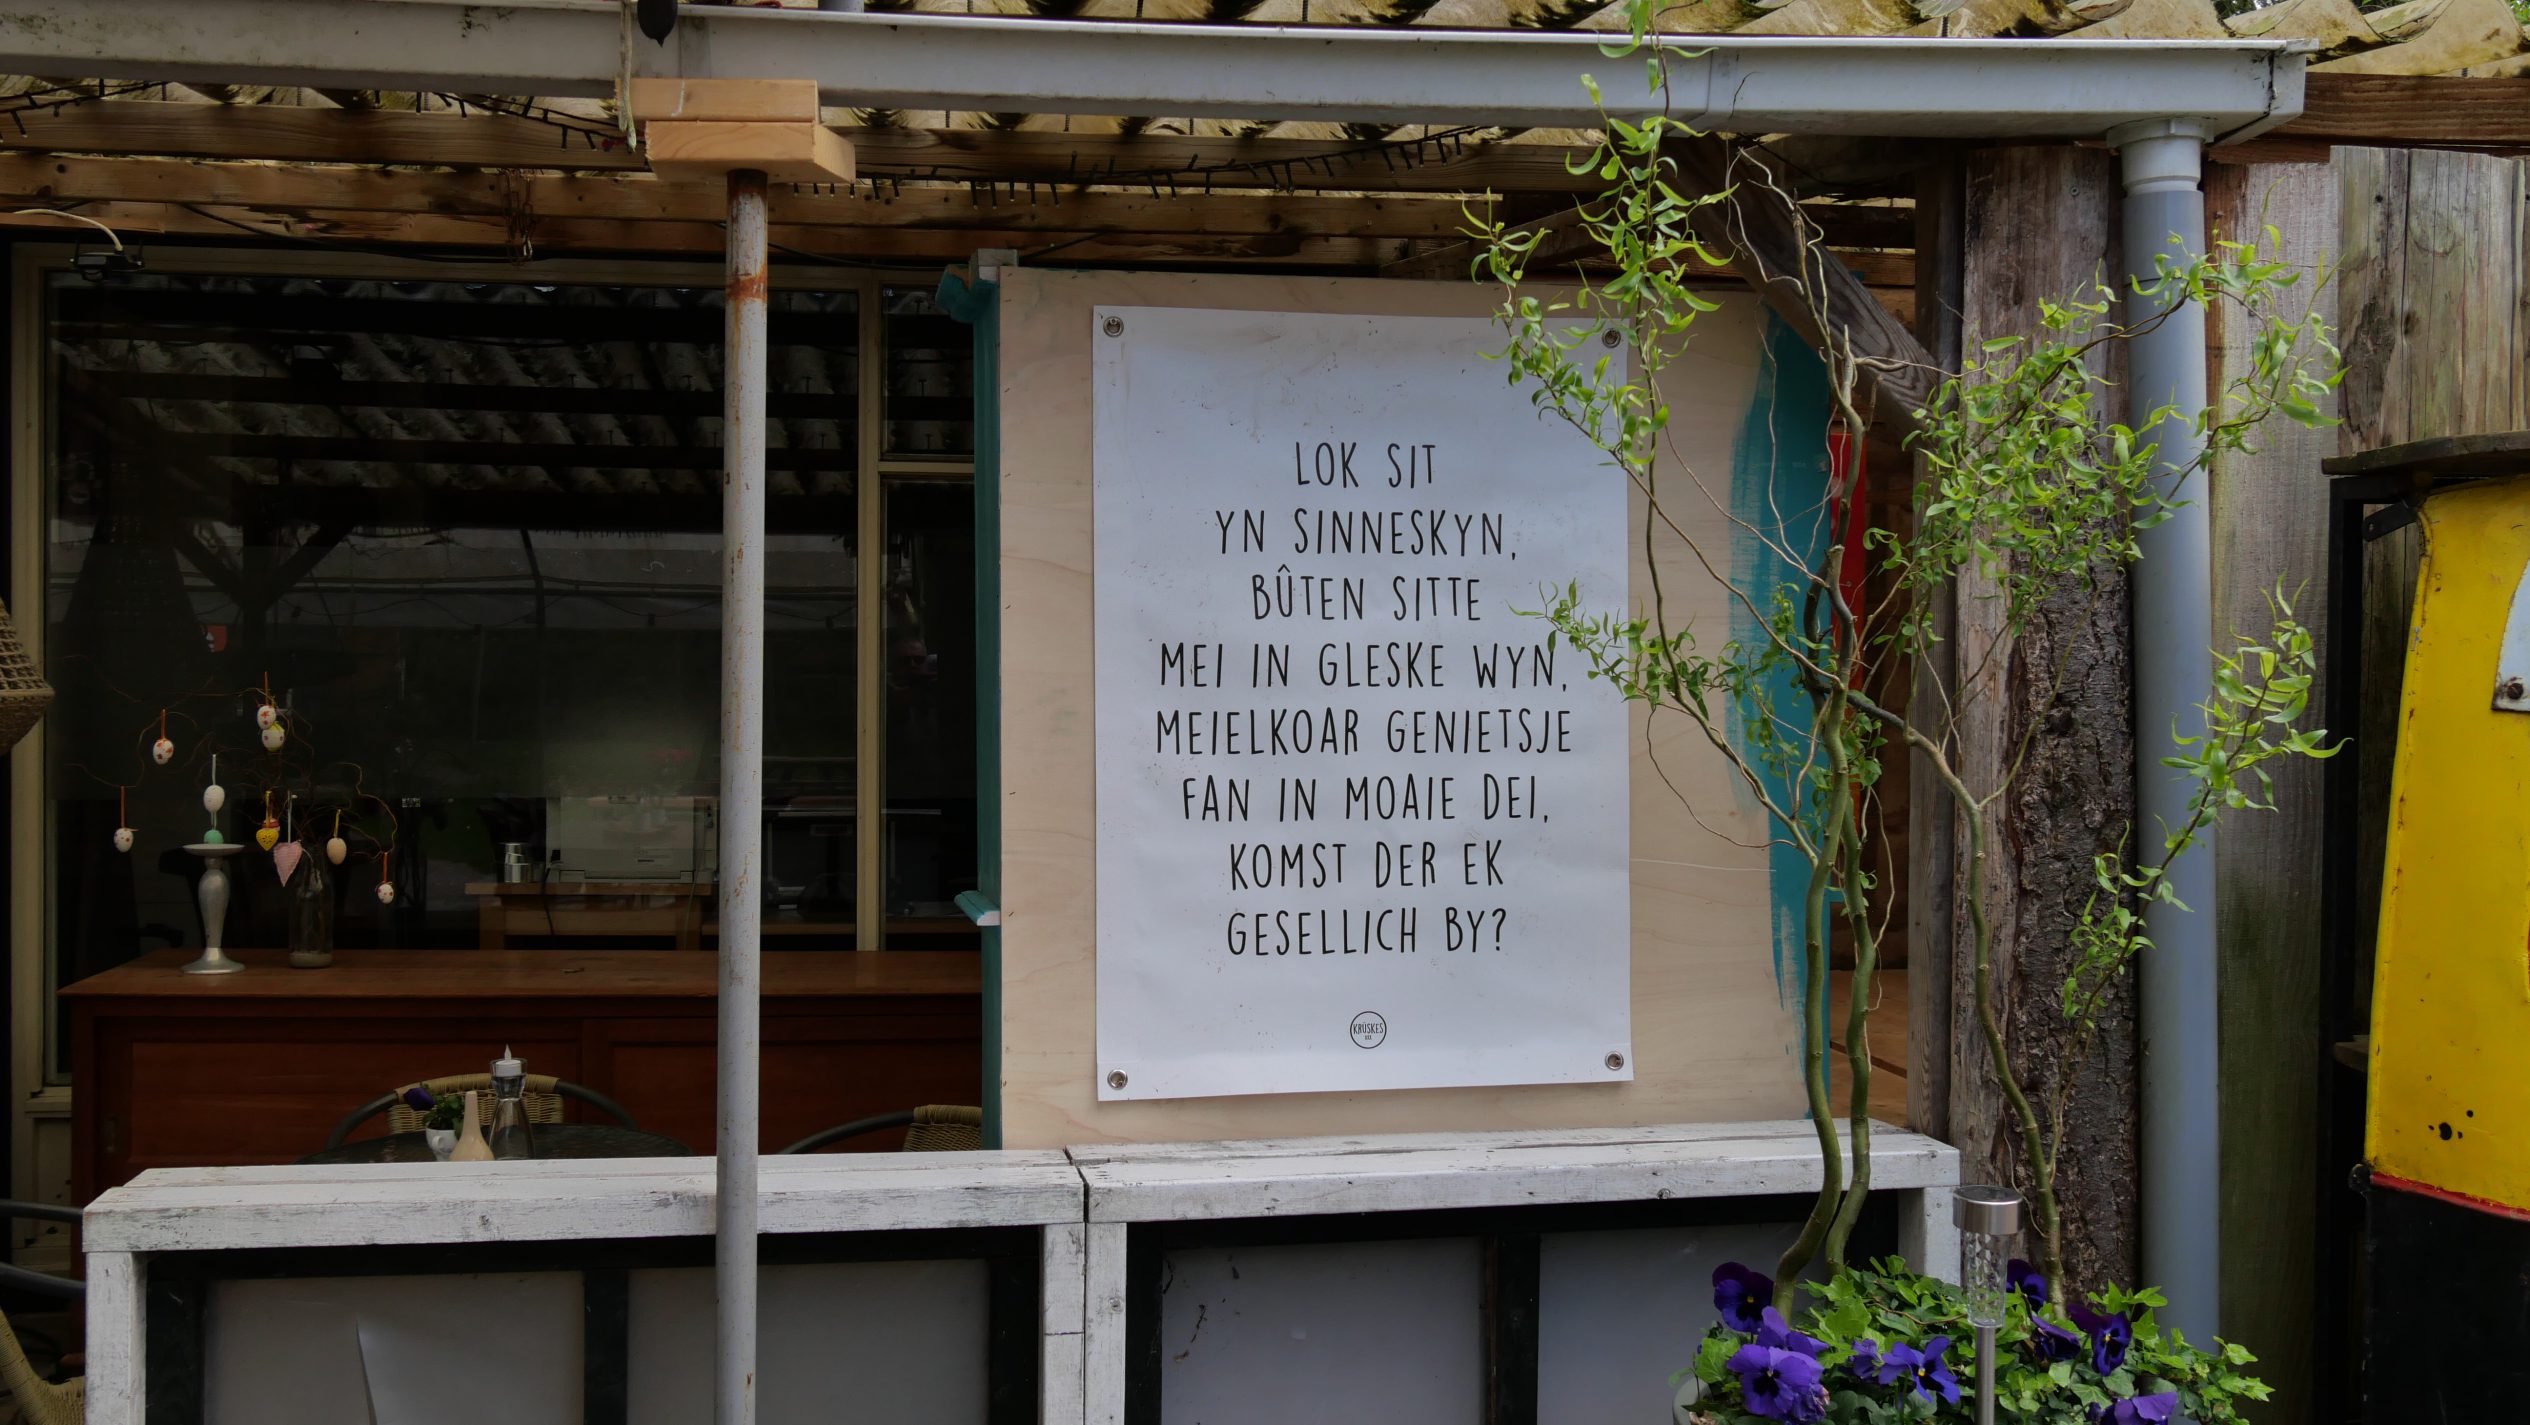 LOK SIT
YN SINNESKYN,
BÛTEN SITTE
MEI IN GLESKE WYN,
MEIELKOAR GENIETSJE
FAN IN MOAIE DEI,
KOMST DER EK
GESELLICH BY?
KRÛSKES
XXX